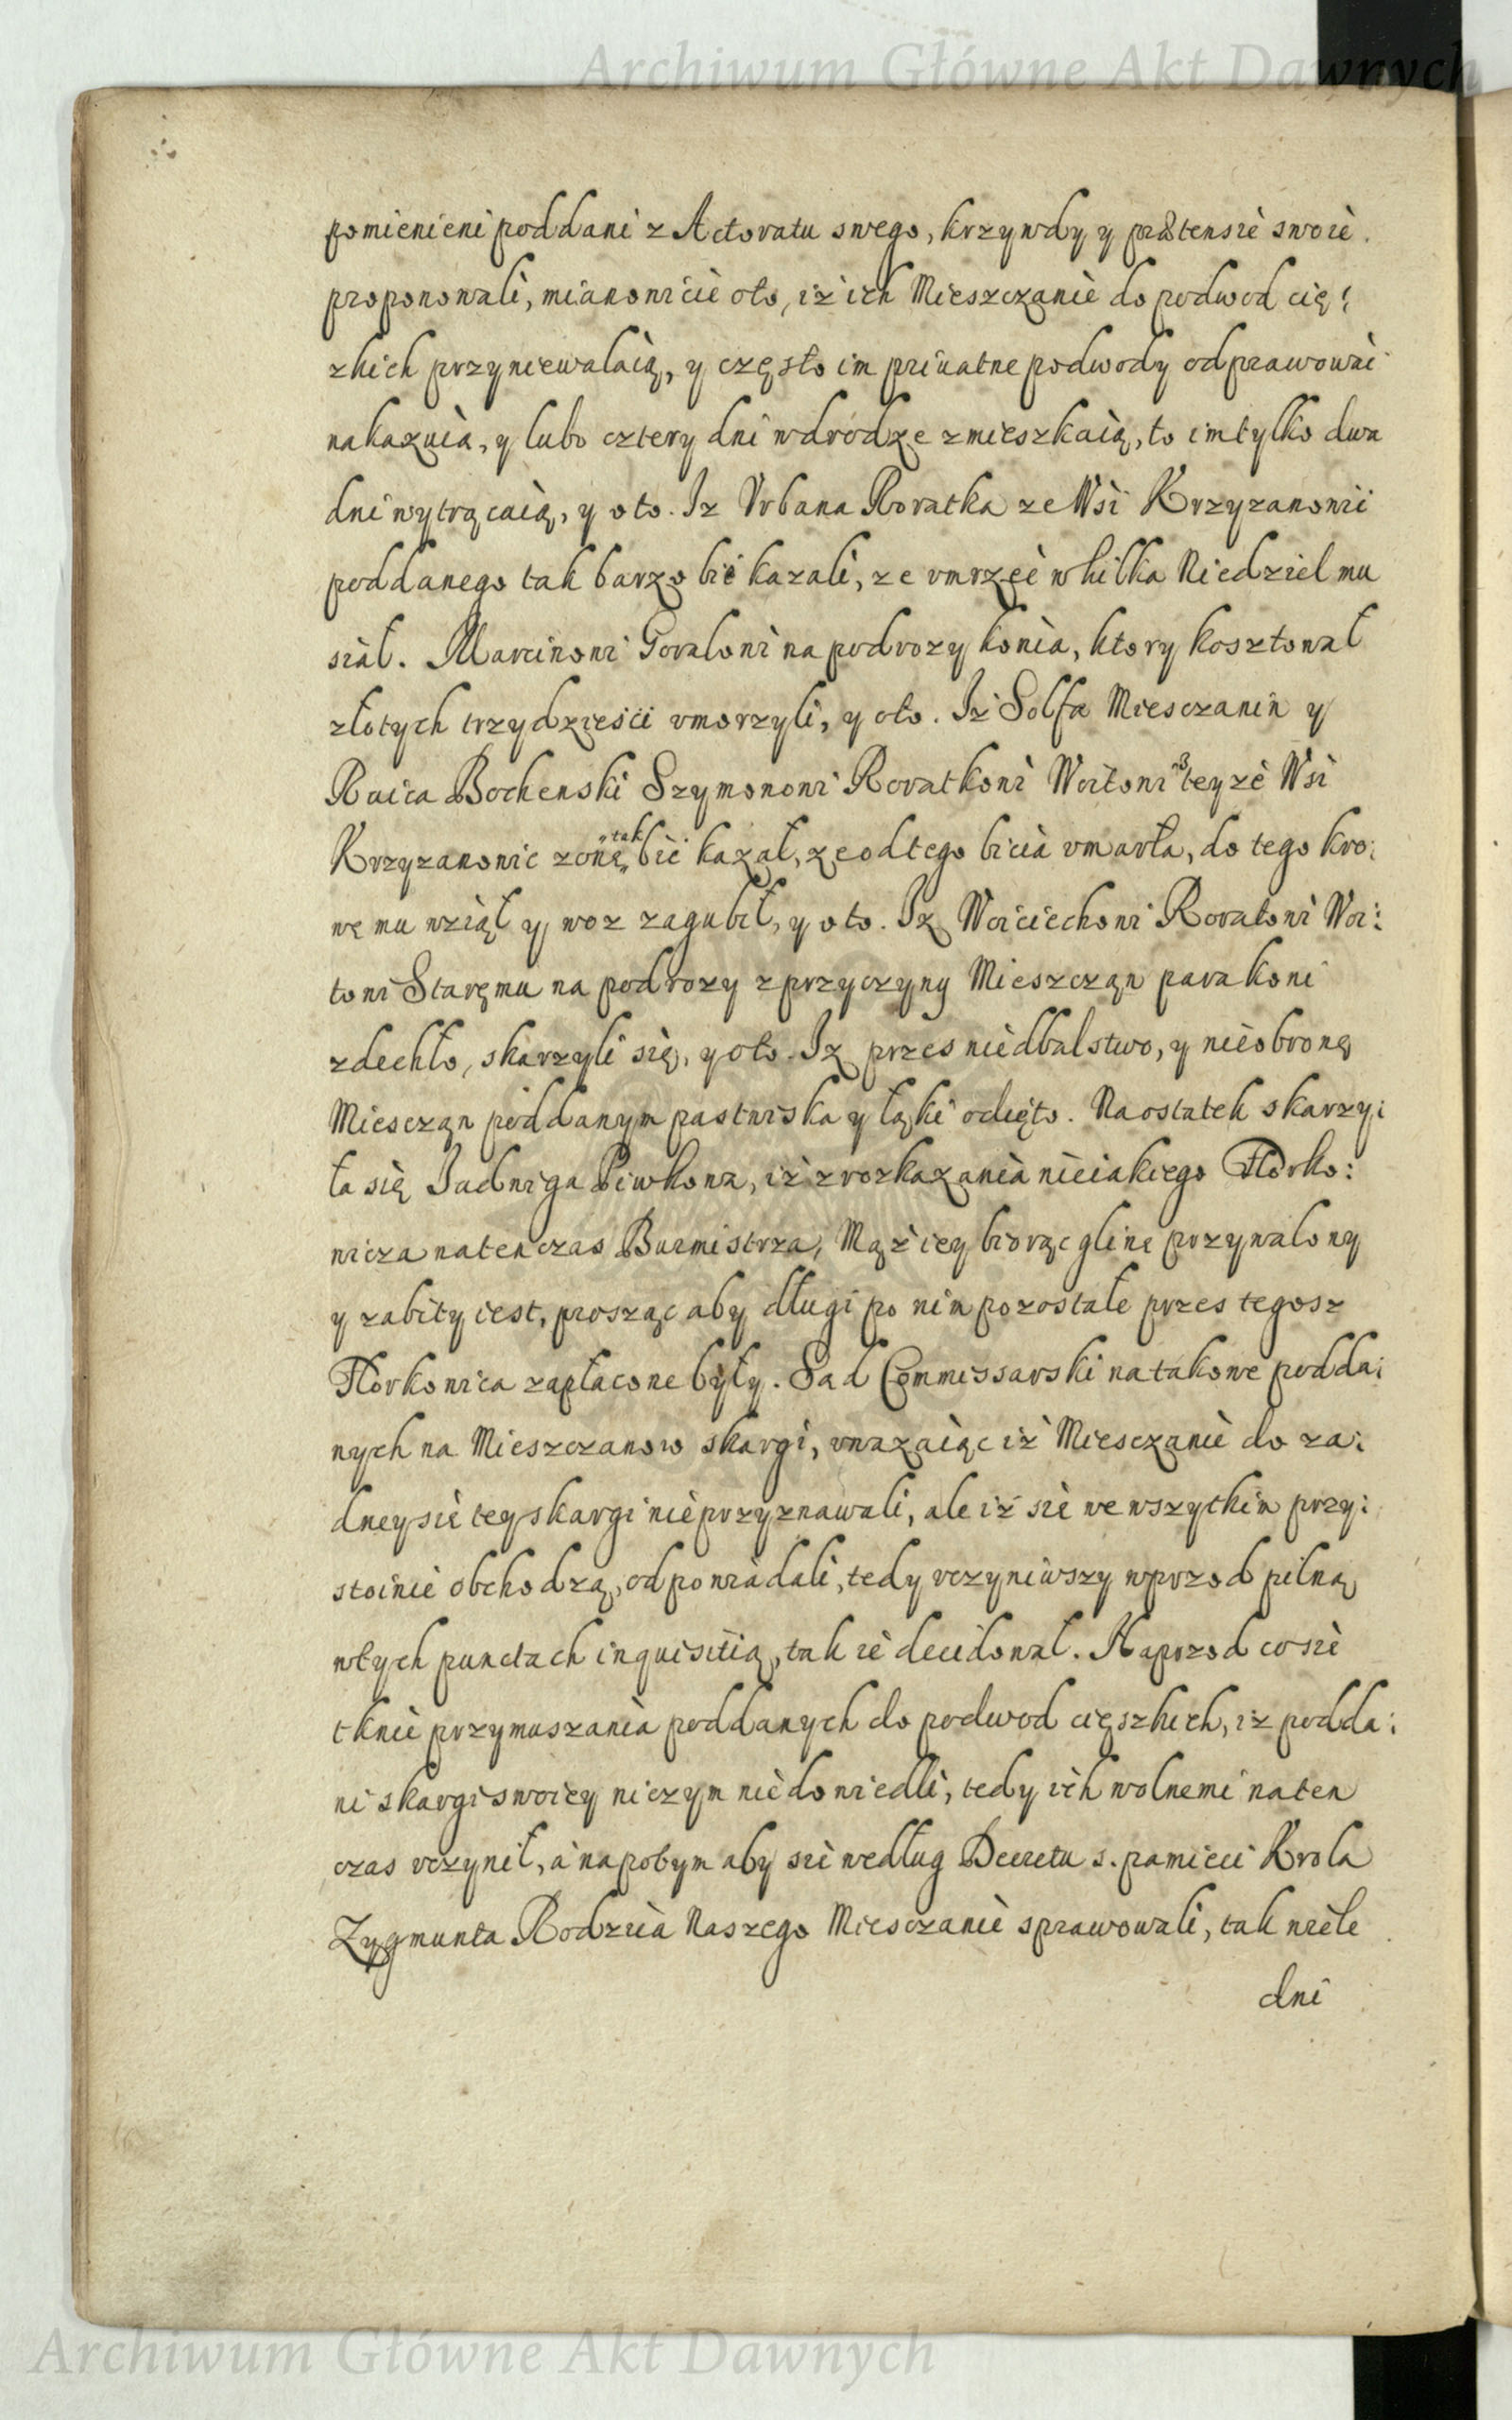 Archiwum Główne Akt Dawnych
pomienieni poddani z Actoratu swego, krzywdy y prætensie swoie
proponowali, mianowicie oto, iż ich Mieszczanie do podwod cię:
zkich przyniewalaią, y często im priuatne podwody odprawowac
nakazuia, y lubo cztery dni w drodze zmieszkaią, to im tylko dwa
dni wytrącaią, y oto. Iz Vrbana Roratka ze Wsi Krzyzanowic
poddanego tak barzo bić kazali, ze vmrzeć w kilka Niedziel mu
siał. Marcinowi Goralowi na podrozy konia, ktory kosztował
złotych trzydzieści vmorzyli, y oto. Iż Solfa Miesczanin y
Raica Bochenski Szymonowi Roratkowi Woitowi teyze Wsi
Krzyzanowic zonę tak bić kazał, ze od tego bicia vmarła, do tego kro:
wę mu wziął y woz zagubił, y oto. Iz Woiciechowi Roratowi Woi:
towi Staremu na podrozy z przyczyny Mieszczan para koni
zdechło, skarzyli się, y oto. Iz przes niedbalstwo, y nieobronę
Miesczan poddanym pastwiska y łąki odięto. Na ostatek skarzy:
ła się Jadwiga Piwkowa, iż z rozkazania nieiakiego Florko:
wicza natenczas Burmistrza, Mąż iey biorąc glinę przywalony
y zabity iest, prosząc aby długi po nim pozostałe przes tegosz
Florkowica zapłacone były. Sad Commissarski na takowe podda:
nych na Mieszczanow skargi, vwazaiąc iż Miesczanie do za:
dney sie tey skargi nieprzyznawali, ale iż sie we wszytkim przy:
stoinie obchodzą, odpowiadali, tedy vczyniwszy wprzod pilną
w tych punctach inquisitią, tak ie decidował. Naprzod co sie
tknie przymuszania poddanych do podwod cięszkich, iz podda:
ni skargi swoiey niczym niedowiedli, tedy ich wolnemi na ten
czas vczynił, a napotym aby sie według Decretu s. pamieci Krola
Zygmunta Rodzica Naszego Miesczanie sprawowali, tak wiele
dni
Archiwum Główne Akt Dawnych